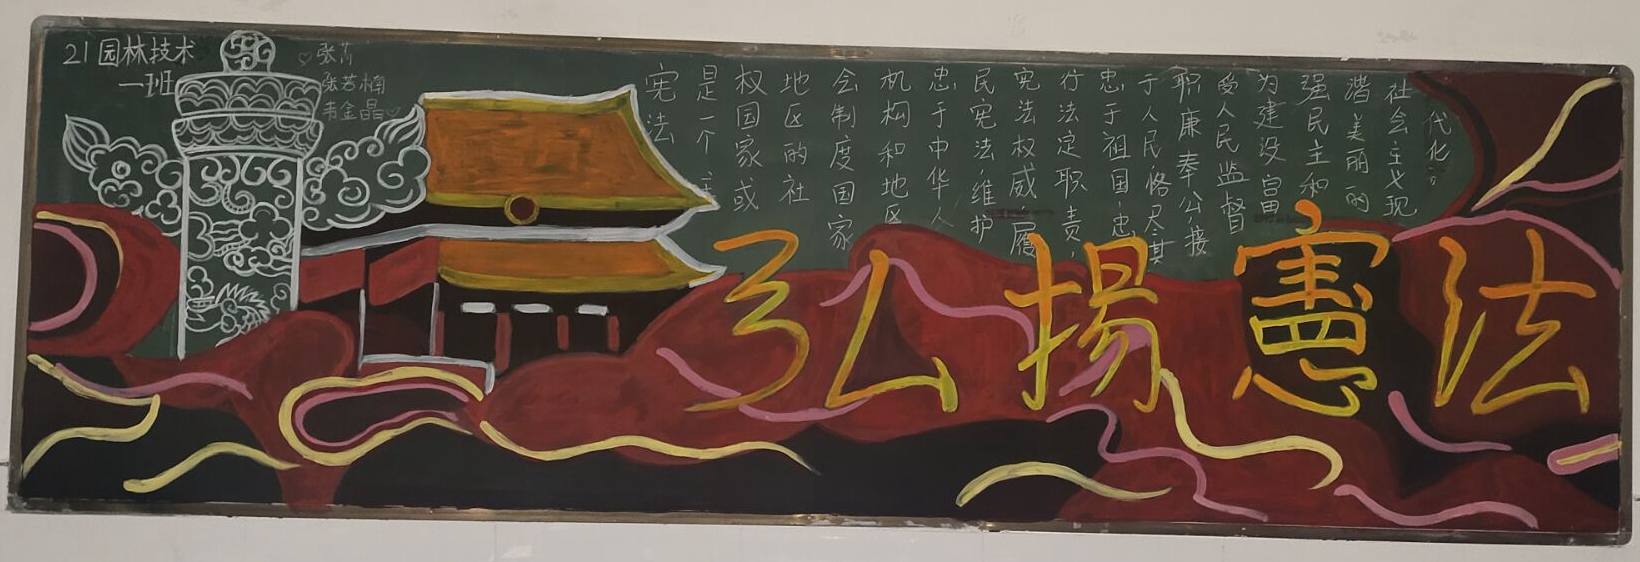 21园林技术
一班
张若楠
韦金晶
宪法
是一个主
权国家或
地区的社
会制度国家
机构和地区
忠于中华人
民宪法,维护
宪法权威,履
行法定职责,
忠于祖国忠
于人民恪尽其
职廉奉公接
受人民监督
为建设富
强民主和
谐美丽的
社会主义现
代化。
弘揚憲法